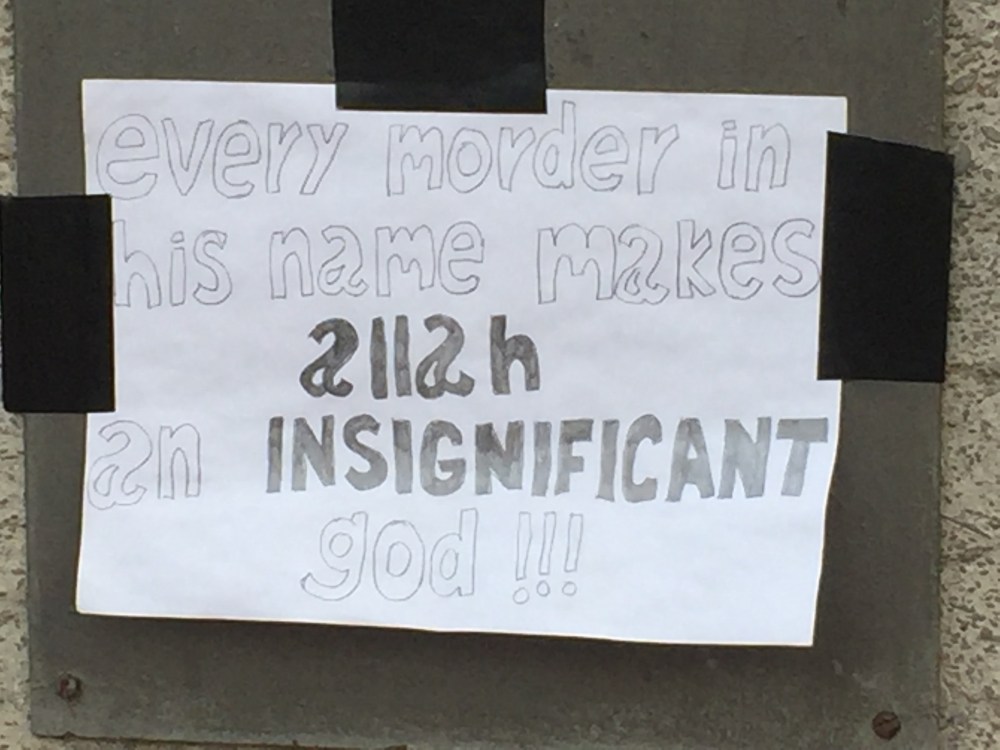 every morder in
his name makes
allah
an INSIGNIFICANT
god !!!